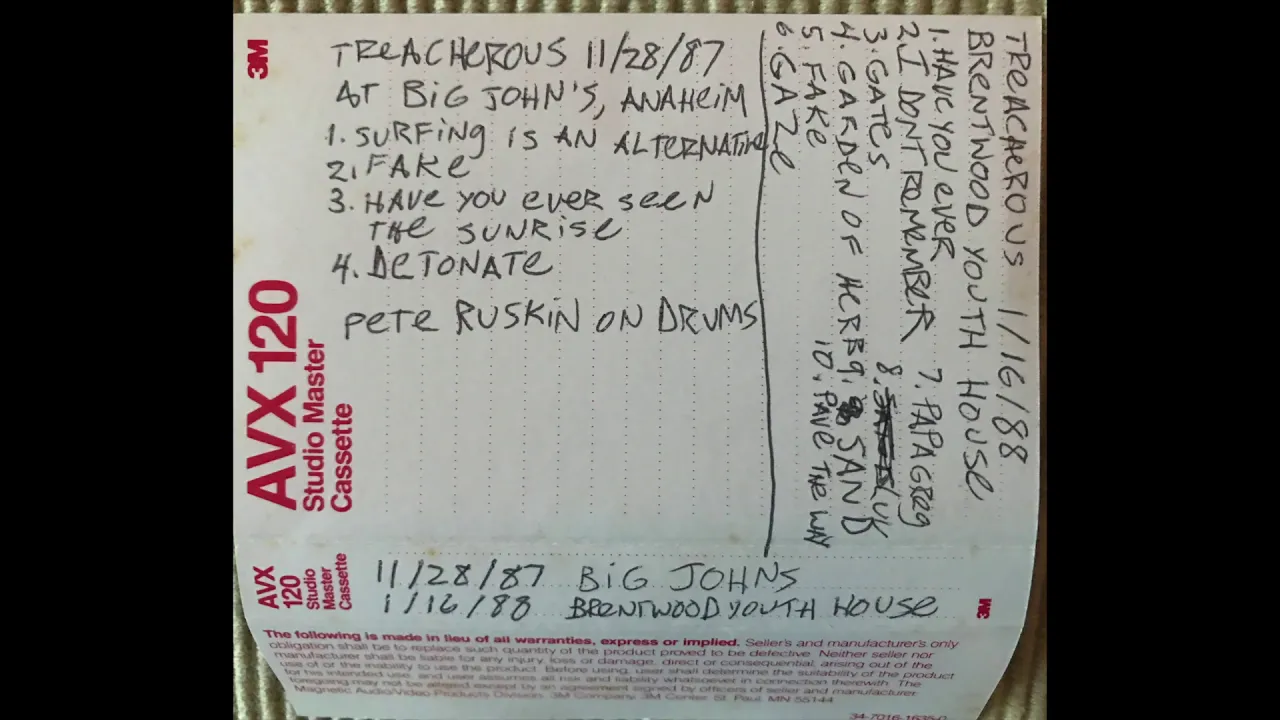 3M
TREACHEROUS 11/28/87
AT BIG JOHN'S, ANAHEIM
1. SURFING IS AN ALTERNATIVE
2. FAKE
3. HAVE YOU EVER SEEN
THE SUNRISE
4. DETONATE
PETE RUSKIN ON DRUMS
TREACHEROUS 1/16/88
BRENTWOOD YOUTH HOUSE
1. HAVE YOU EVER
2 I DONT REMEMBER
3. GATES
4. GARDEN OF HERB
5. FAKE
6. GAZE
7. PAPAGREG
8.
9. SAND
10. PAVE THE WAY
AVX 120
Studio Master
Cassette
AVX
120
Studio
Master
Cassette
11/28/87 BIG JOHNS
1/16/88 BRENTWOOD YOUTH HOUSE
3M
The following is made in lieu of all warranties, express or implied. Seller's and manufacturer's only
obligation shall be to replace such quantity of the product proved to be defective. Neither seller nor
manufacturer shall be liable for any injury, loss or damage, direct or consequential, arising out of the
use of or the inability to use the product. Before using, user shall determine the suitability of the product
for its intended use, and user assumes all risk and liability whatsoever in connection therewith. The
foregoing may not be altered except by an agreement signed by officers of seller and manufacturer.
Magnetic Audio/Video Products Division, 3M Company, 3M Center, St. Paul, MN 55144